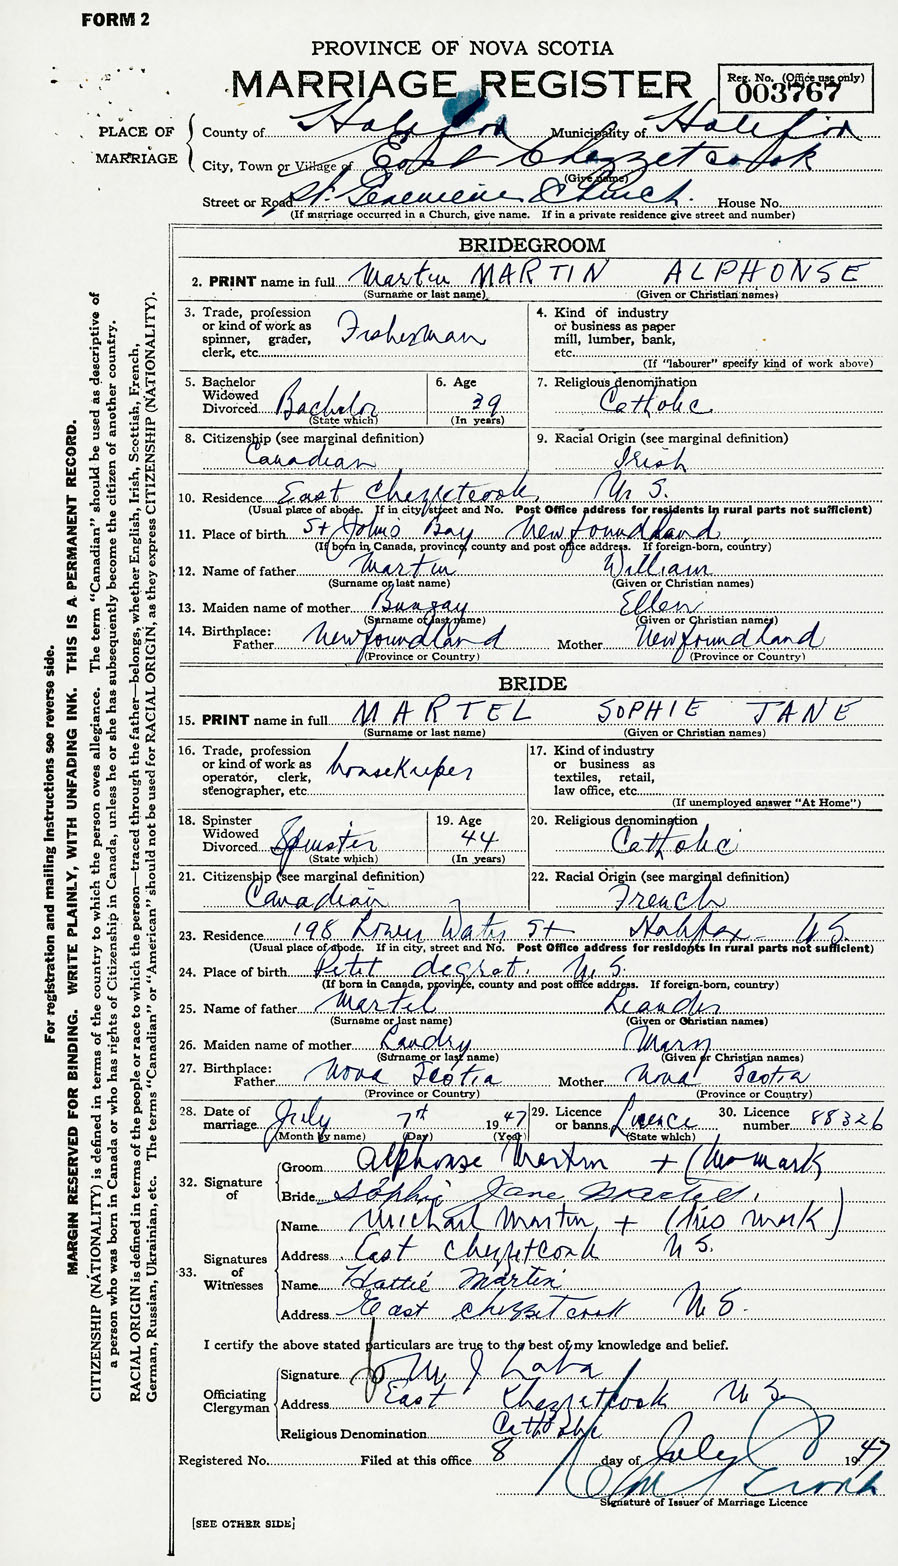 FORM 2
PROVINCE OF NOVA SCOTIA
MARRIAGE REGISTER
Reg. No. (Office use only)
003767
PLACE OF MARRIAGE
County of Halifax Municipality of Halifax
City, Town or Village of East Chezzetcook
(Give name)
Street or Road St. Genevieve Church. House No.
(If marriage occurred in a Church, give name. If in a private residence give street and number)
BRIDEGROOM
2. PRINT name in full Martin MARTIN ALPHONSE
(Surname or last name) (Given or Christian names)
3. Trade, profession or kind of work as spinner, grader, clerk, etc. Fisherman
4. Kind of industry or business as paper mill, lumber, bank, etc.
(If "labourer" specify kind of work above)
5. Bachelor Widowed Divorced Bachelor
(State which)
6. Age 39
(In years)
7. Religious denomination
Catholic
8. Citizenship (see marginal definition)
Canadian
9. Racial Origin (see marginal definition)
Irish
10. Residence East Chezzetcook N S.
(Usual place of abode. If in city, street and No. Post Office address for residents in rural parts not sufficient)
11. Place of birth St Johns Bay Newfoundland
(If born in Canada, province, county and post office address. If foreign-born, country)
12. Name of father Martin William
(Surname or last name) (Given or Christian names)
13. Maiden name of mother Bungay Ellen
(Surname or last name) (Given or Christian names)
14. Birthplace: Father Newfoundland Mother Newfoundland
(Province or Country) (Province or Country)
BRIDE
15. PRINT name in full MARTEL SOPHIE JANE
(Surname or last name) (Given or Christian names)
16. Trade, profession or kind of work as operator, clerk, stenographer, etc. housekeeper
17. Kind of industry or business as textiles, retail, law office, etc.
(If unemployed answer "At Home")
18. Spinster Widowed Divorced Spinster
(State which)
19. Age 44
(In years)
20. Religious denomination
Catholic
21. Citizenship (see marginal definition)
Canadian
22. Racial Origin (see marginal definition)
French
23. Residence 198 Lower Water St Halifax N.S.
(Usual place of abode. If in city, street and No. Post Office address for residents in rural parts not sufficient)
24. Place of birth Petit degrat. N S.
(If born in Canada, province, county and post office address. If foreign-born, country)
25. Name of father Martel Leander
(Surname or last name) (Given or Christian names)
26. Maiden name of mother Landry Mary
(Surname or last name) (Given or Christian names)
27. Birthplace: Father Nova Scotia Mother Nova Scotia
(Province or Country) (Province or Country)
28. Date of marriage July 7th 1947
(Month by name) (Day) (Year)
29. Licence or banns Licence
(State which)
30. Licence number 88326
32. Signature of
Groom Alphonse Martin + (his mark
Bride Sophie Jane Martel.
33. Signatures of Witnesses
Name Michael Martin + (his mark)
Address East Chezzetcook N S.
Name Hattie Martin
Address East Chezzetcook N S.
I certify the above stated particulars are true to the best of my knowledge and belief.
Officiating Clergyman
Signature M J Laba
Address East Chezzetcook N S
Religious Denomination Catholic
Registered No. Filed at this office 8 day of July 1947
Signature of Issuer of Marriage Licence
[SEE OTHER SIDE]
For registration and mailing instructions see reverse side.
MARGIN RESERVED FOR BINDING. WRITE PLAINLY, WITH UNFADING INK. THIS IS A PERMANENT RECORD.
CITIZENSHIP (NATIONALITY) is defined in terms of the country to which the person owes allegiance. The term "Canadian" should be used as descriptive of
a person who was born in Canada or who has rights of Citizenship in Canada, unless he or she has subsequently become the citizen of another country.
RACIAL ORIGIN is defined in terms of the people or race to which the person—traced through the father—belongs, whether English, Irish, Scottish, French,
German, Russian, Ukrainian, etc. The terms "Canadian" or "American" should not be used for RACIAL ORIGIN, as they express CITIZENSHIP (NATIONALITY).